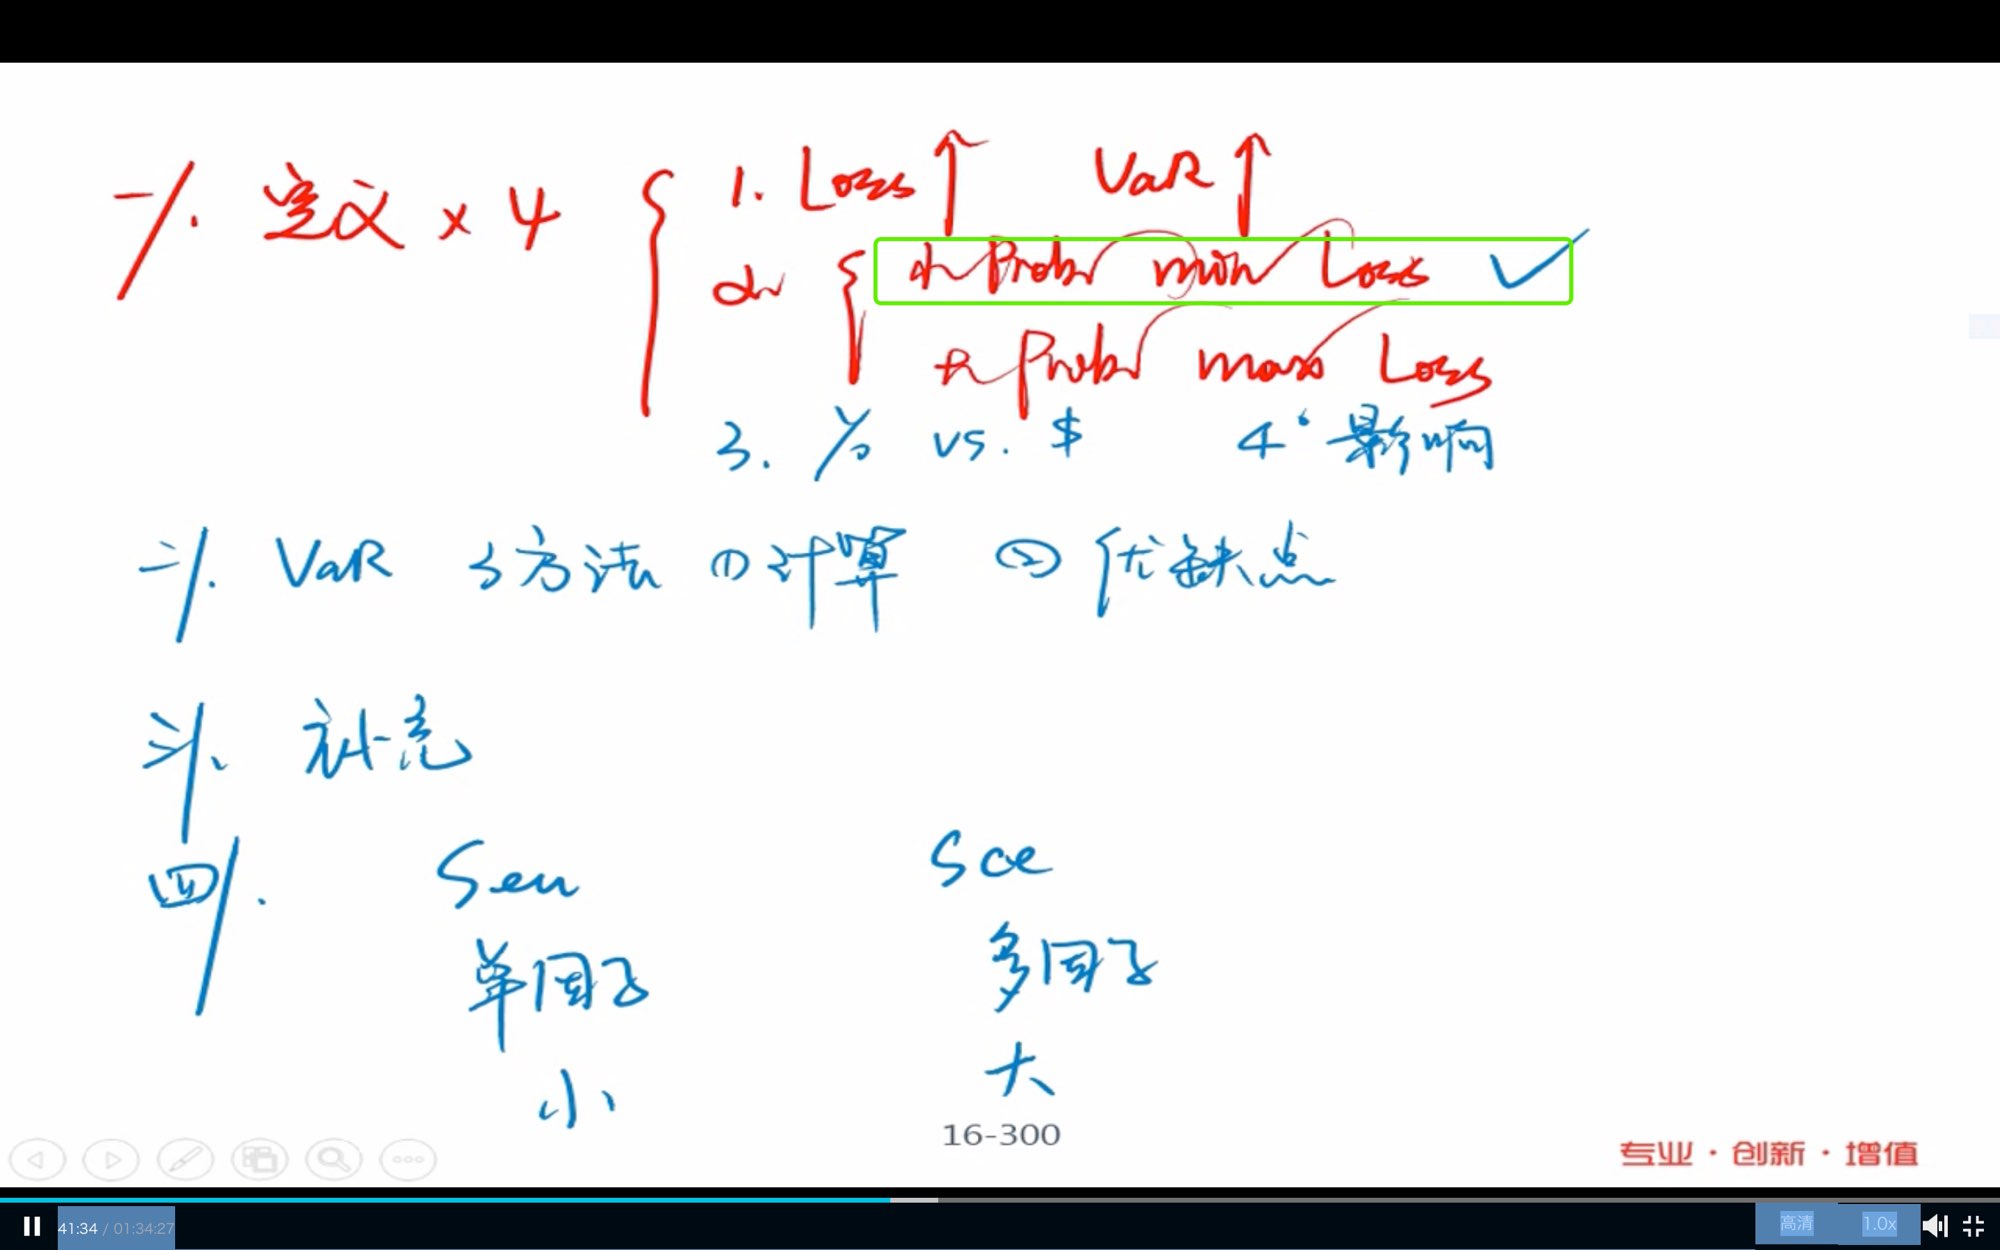 一、定义 × 4
1. Loss ↑ VaR ↑
2. 小 Prob min Loss ✓
大 Prob max Loss
3. % vs. $ 4. 影响
二、VaR 3方法 ① 计算 ② 优缺点
三、补充
四、 Sen Sce
单因子 多因子
小 大
16-300
专业·创新·增值
41:34 / 01:34:27 高清 1.0x